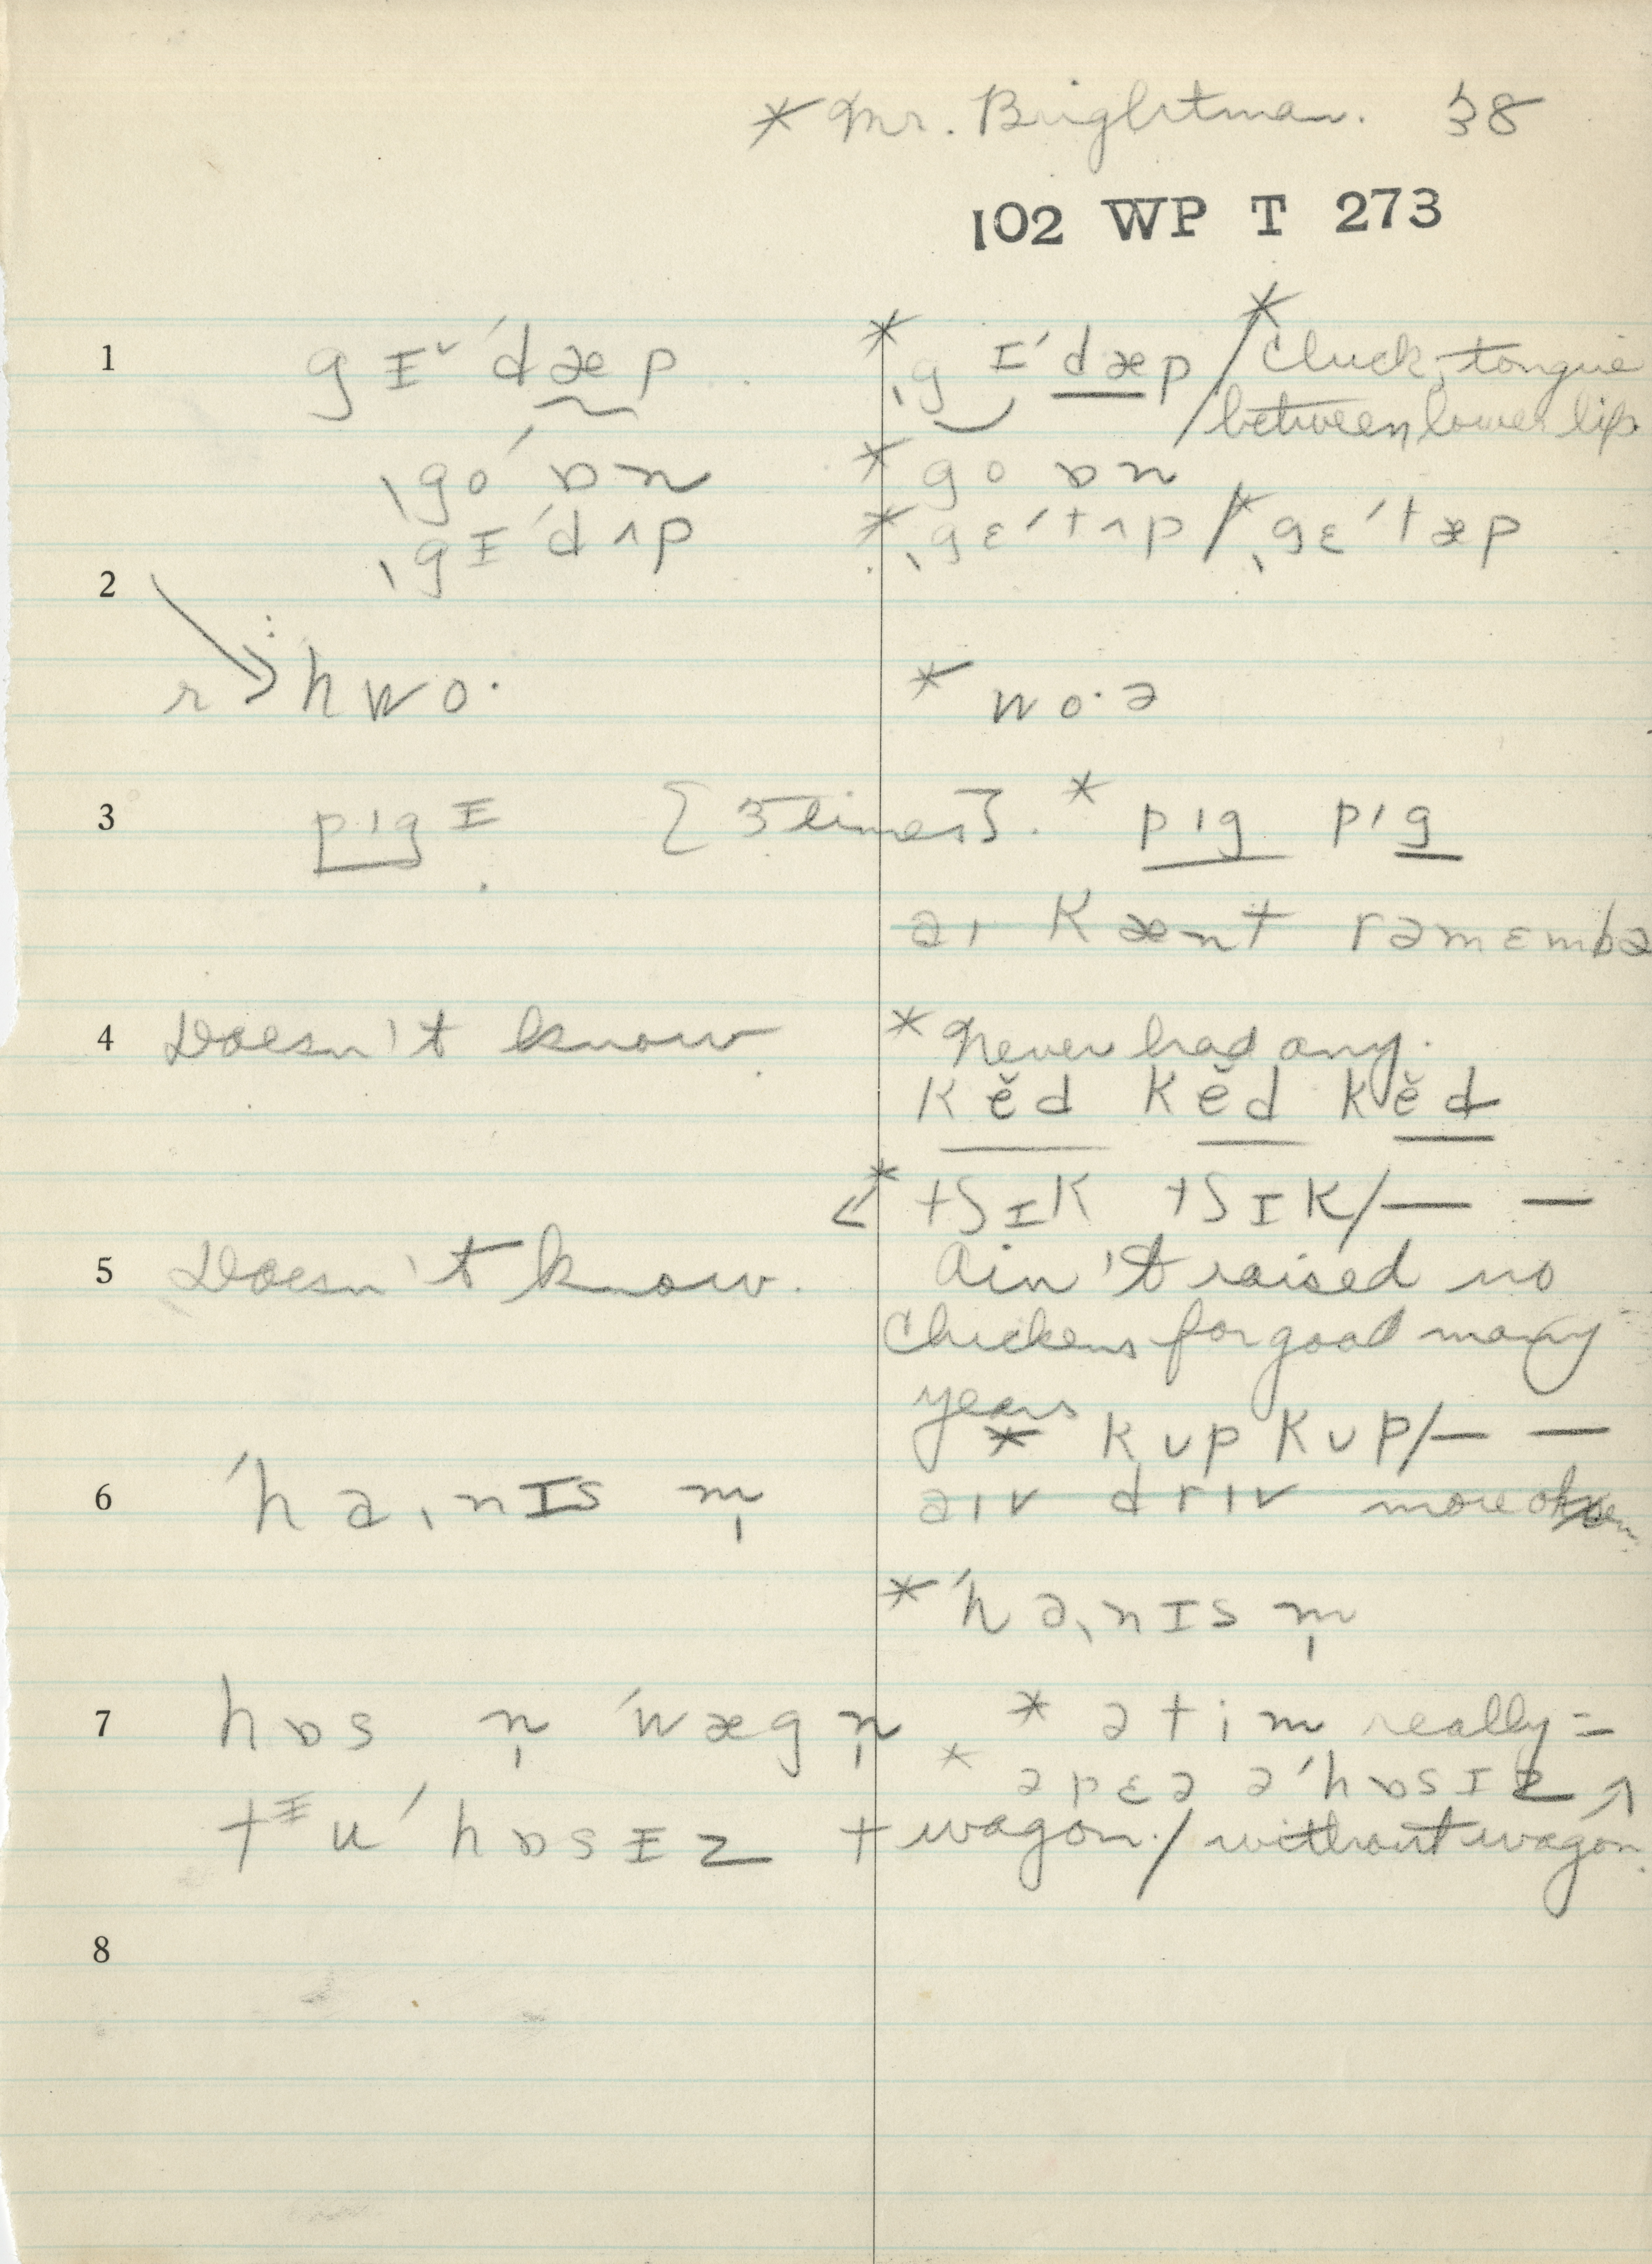 * Mr. Brightman. 38
102 WP T 273
1 gɪˇ ˈdæp * ˌgɪˈdæp / * Cluck, tongue
between lower lip.
ˌgoˈ ɒn * go ɒn
ˌgɪˈdʌp * ˌgɛˈtʌp / * ˌgɛˈtæp
2
r hwo· * wo·ə
3 pɪgɪ [3 times]. * pɪg pɪg
aɪ kænt rəmɛmbə
4 Doesn't know * Never had any.
kĕd kĕd kĕd
* tʃɪk tʃɪk/— —
5 Doesn't know. Ain't raised no
Chickens for good many
years
* kʊp kʊp/— —
6 ˈhaˌnɪs m̩ aɪv drɪv more often
* ˈhaˌnɪs m̩
7 hɒs n̩ ˈwægn̩ * ə tim really =
* ə pɛə əˈhɒsɪz ↑
tɪuˈhɒsɪz + wagon. / without wagon.
8